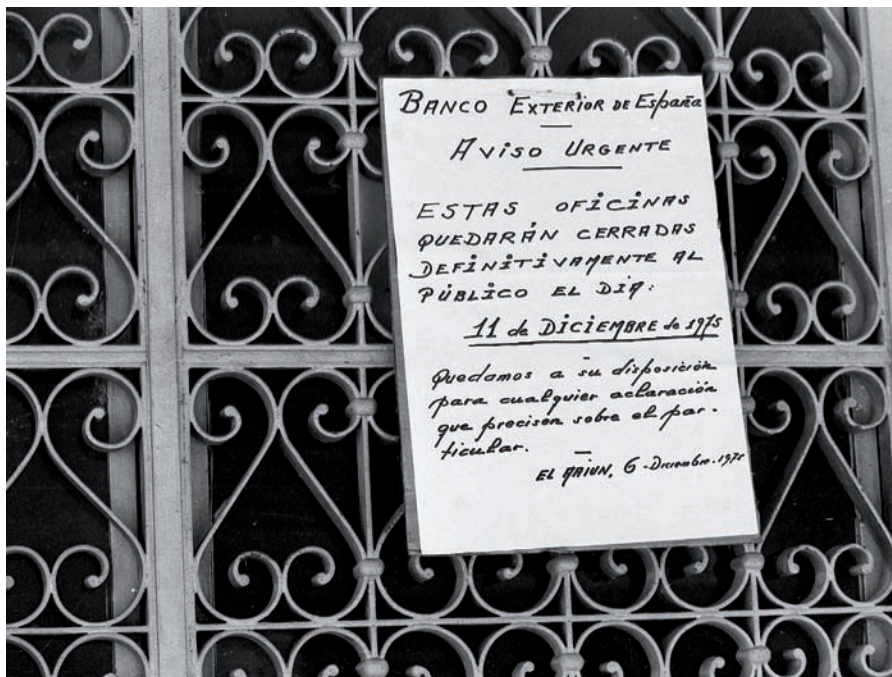 BANCO EXTERIOR DE España
AVISO URGENTE
ESTAS OFICINAS
QUEDARÁN CERRADAS
DEFINITIVAMENTE AL
PÚBLICO EL DIA:
11 de DICIEMBRE de 1975
Quedamos a su disposición
para cualquier aclaración
que precisen sobre el par-
ticular.
EL AAIUN, 6-Diciembre-1975